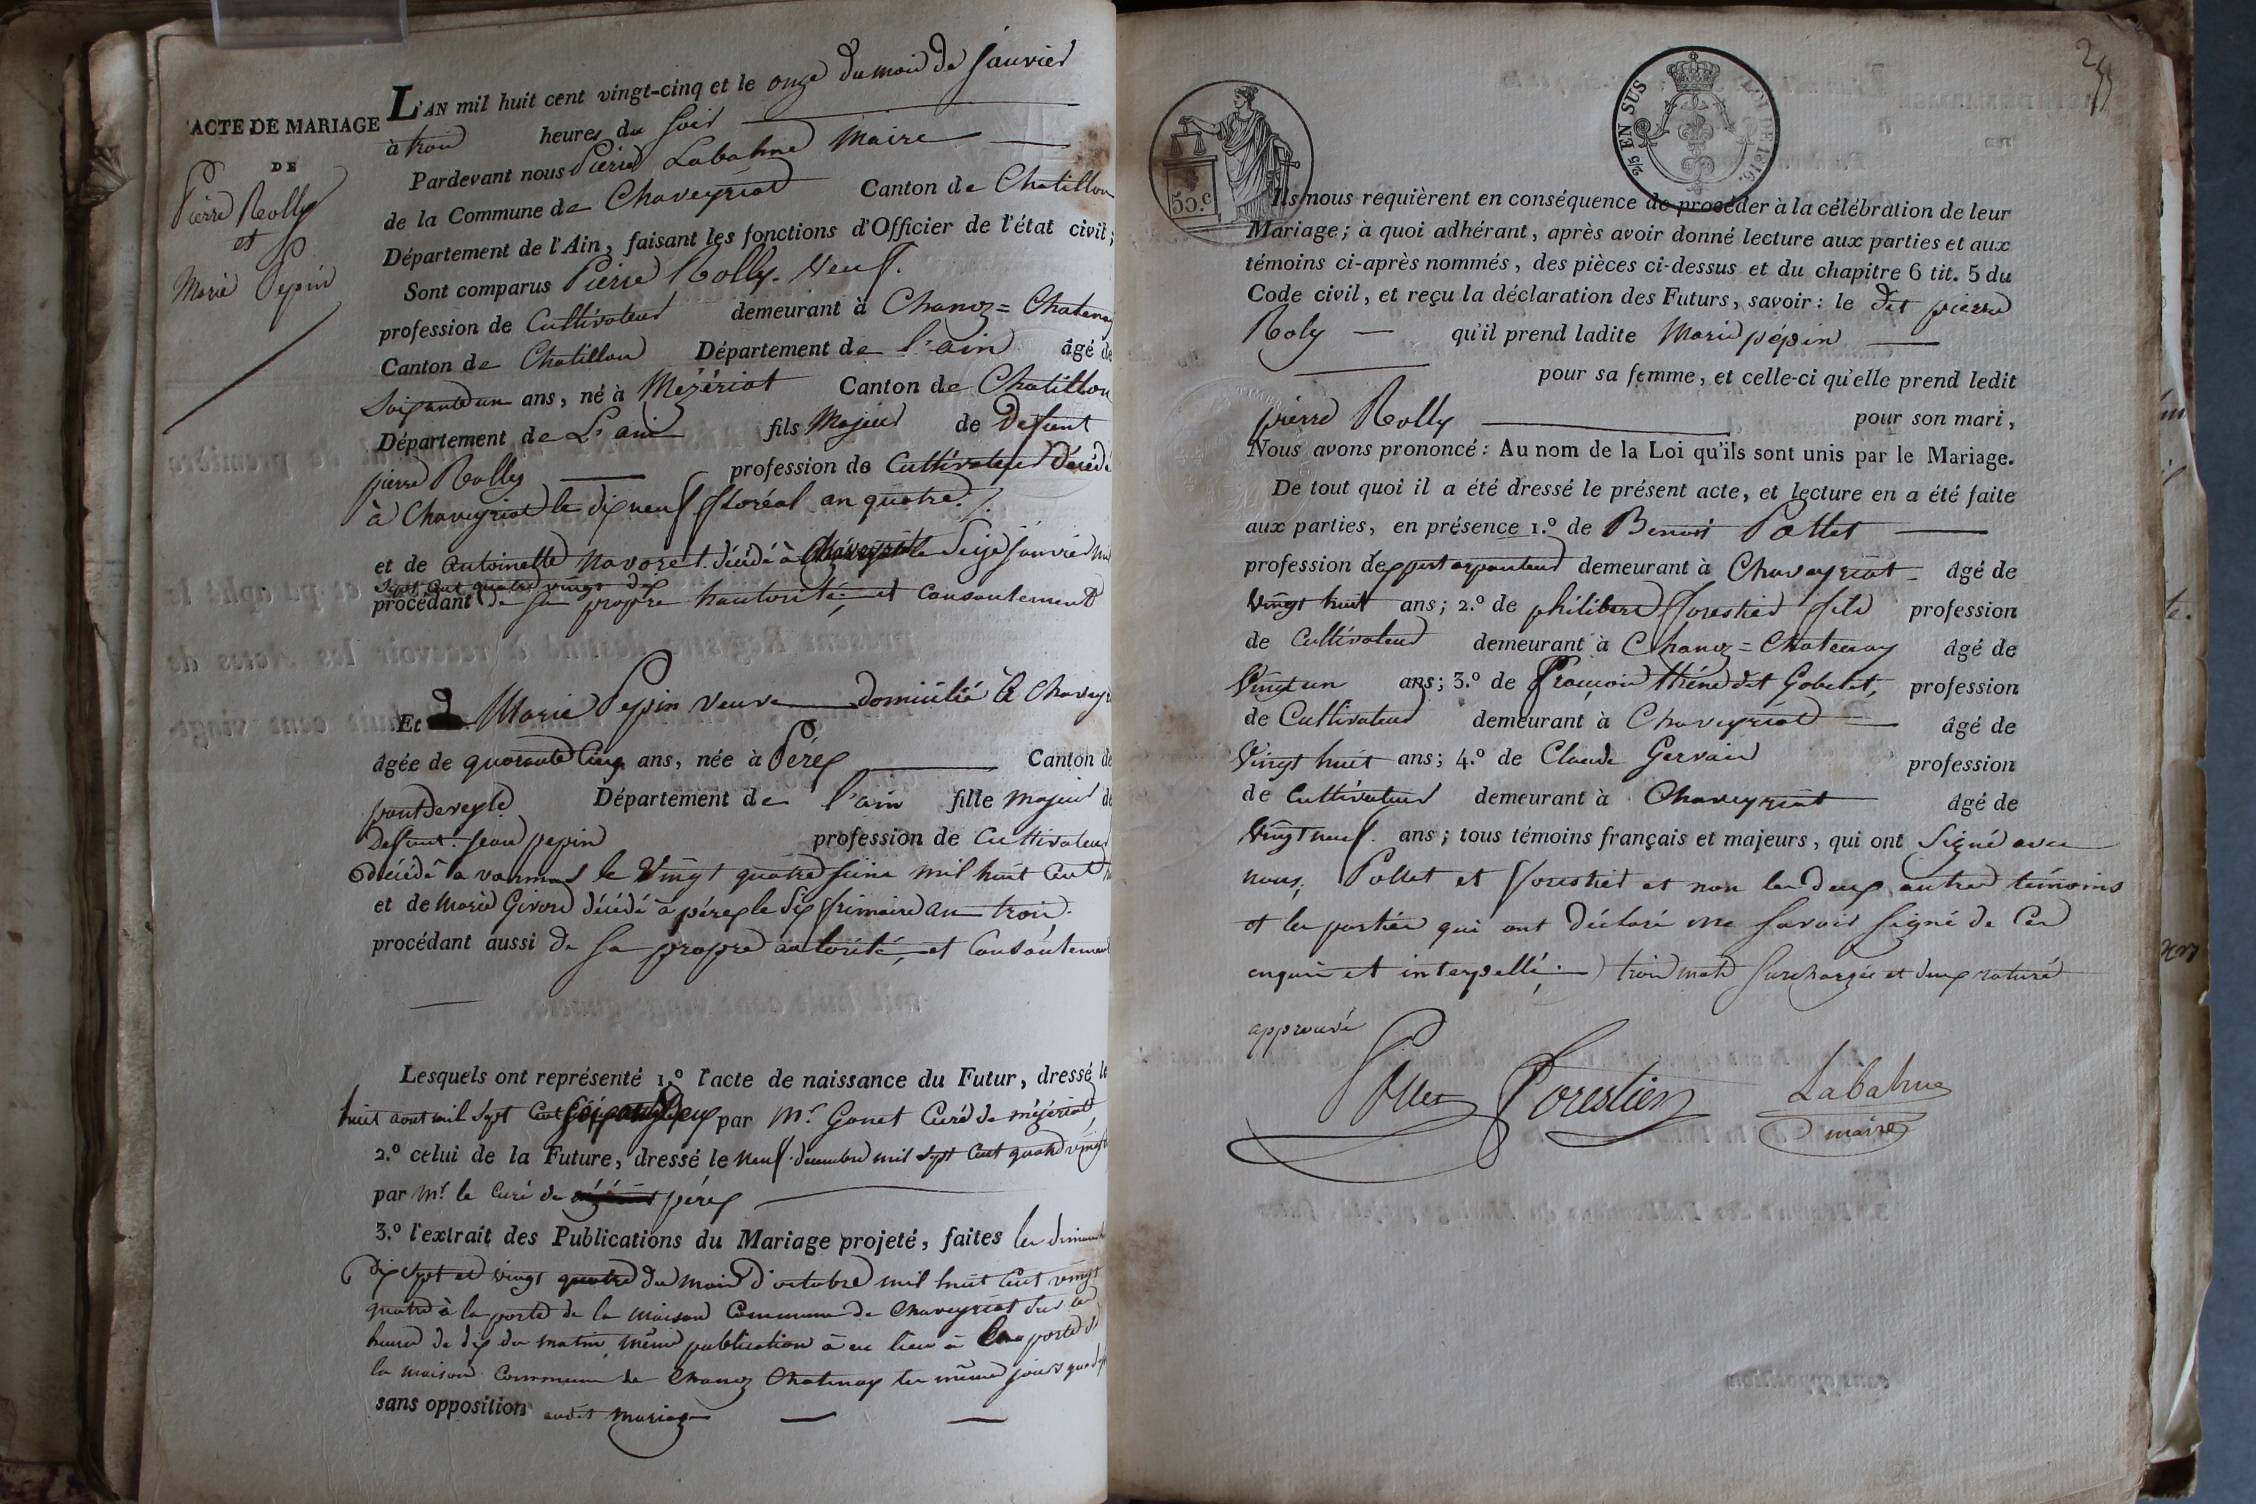 ACTE DE MARIAGE
DE
Pierre Rolly
et
Marie Pepin
L'AN mil huit cent vingt-cinq et le onze du mois de Janvier
à trois heures du Soir
Pardevant nous Pierre Labahue Maire
de la Commune de Chaveyriat Canton de Chatillon
Département de l'Ain, faisant les fonctions d'Officier de l'état civil;
Sont comparus Pierre Rolly. Veuf.
profession de Cultivateur demeurant à Chanoz = Chatenay
Canton de Chatillon Département de l'ain âgé de
Soixante un ans, né à Mézériat Canton de Chatillon
Département de L'ain fils Majeur de Defunt
pierre Rolly profession de Cultivateur Décédé
à Chaveyriat le dix neuf floréal an quatre.
et de Antoinette Navoret. décédé à Chaveyriat le Seize janvier mil
Sept Cent quatre vingt dix
procédant De sa propre hautorité, et Consentement
Et Marie Pepin veuve domicilié à Chavey
âgée de quarante Cinq ans, née à Pérex Canton de
pontdeveyle Département de l'ain fille Majeur de
Defunt. Jean pepin profession de Cultivateur
décédé à vonnas le Vingt quatre juin mil huit Cent
et de Marie Givord décédé à pérex le Six frimaire an trois.
procédant aussi de Sa propre autorité, et Consentement
Lesquels ont représenté 1.º l'acte de naissance du Futur, dressé le
huit aout mil Sept Cent par Mr. Gonet Curé de mézériat,
2.º celui de la Future, dressé le neuf. decembre mil Sept Cent quatre vingt
par Mr. le Curé de pérex
3.º l'extrait des Publications du Mariage projeté, faites les dimanche
dix Sept et vingt quatre du mois d'octobre mil huit Cent vingt
quatre à la porte de la maison Commune de Chaveyriat Sur les
heures de dix du matin, même publication à eu lieu à la porte de
la maison Commune de Chanoz Chatenay les même jours que
sans opposition audit mariage
55.c
2/5 EN SUS
LOI DE 1816.
Ils nous requièrent en conséquence de procéder à la célébration de leur
Mariage; à quoi adhérant, après avoir donné lecture aux parties et aux
témoins ci-après nommés, des pièces ci-dessus et du chapitre 6 tit. 5 du
Code civil, et reçu la déclaration des Futurs, savoir: le dit pierre
Roly qu'il prend ladite Marie pépin
pour sa femme, et celle-ci qu'elle prend ledit
pierre Rolly pour son mari,
Nous avons prononcé: Au nom de la Loi qu'ils sont unis par le Mariage.
De tout quoi il a été dressé le présent acte, et lecture en a été faite
aux parties, en présence 1.º de Benoit Pollet
profession de demeurant à Chaveyriat âgé de
Vingt huit ans; 2.º de philibert forestier fils profession
de Cultivateur demeurant à Chanoz = Chatenay âgé de
Vingt un ans; 3.º de François Théne dit Gobelet, profession
de Cultivateur demeurant à Chaveyriat âgé de
Vingt huit ans; 4.º de Claude Gervais profession
de Cultivateur demeurant à Chaveyriat âgé de
Vingt neuf. ans; tous témoins français et majeurs, qui ont Signé avec
nous, Pollet et forestier et non les deux autres témoins
et les parties qui ont déclaré ne Savoir Signé de Ces
enquis et interpellé; trois mots Surchargés et deux raturé
approuvé
Pollet Forestier Labahue
maire